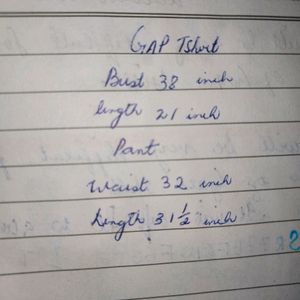 GAP Tshirt
Bust 38 inch
length 21 inch
Pant
Waist 32 inch
Length 31 1/2 inch